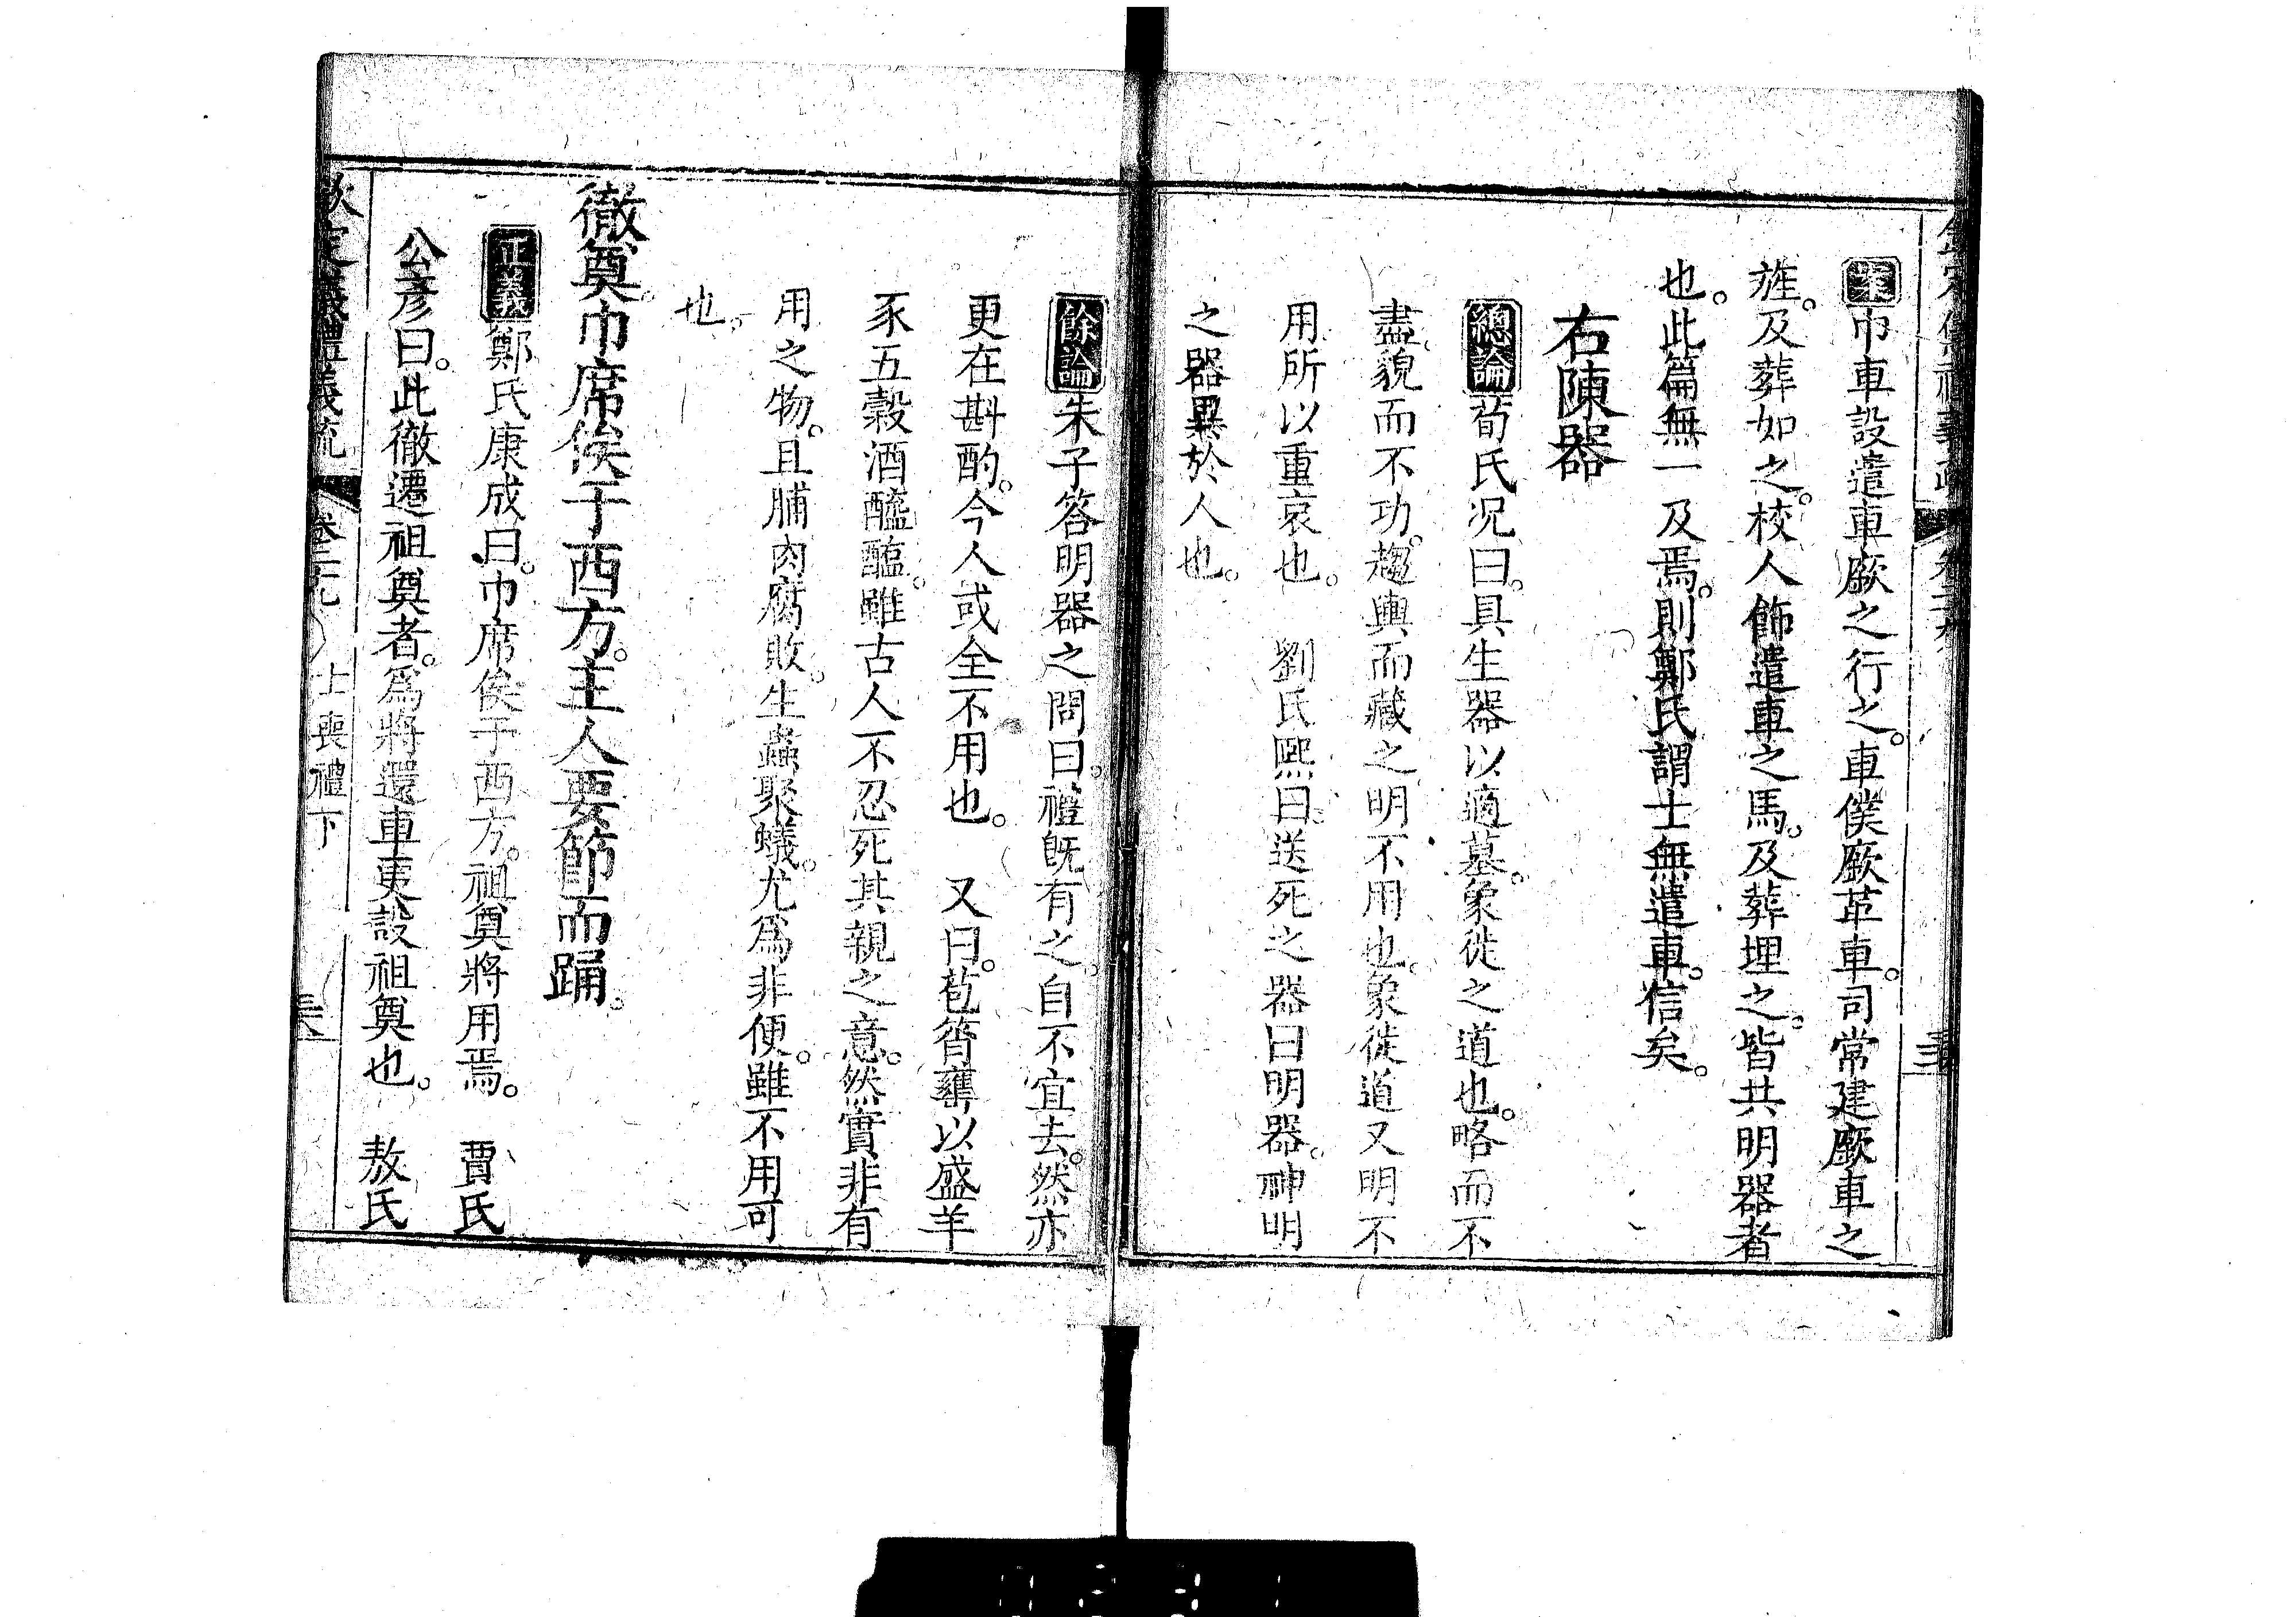 案巾車設遣車廞之行之。車僕廞革車。司常建廞車之
旌。及葬如之。校人飾遣車之馬。及葬埋之。皆共明器者
也。此篇無一及焉。則鄭氏謂士無遣車。信矣。
右陳器
總論荀氏况曰。具生器以適墓。象徙之道也。略而不
盡。貌而不功。趨輿而藏之。明不用也。象徙道又明不
用所以重哀也。　劉氏熈曰。送死之器曰明器。神明
之器異於人也。
餘論朱子答明器之問曰。禮旣有之。自不宜去。然亦
更在斟酌。今人或全不用也。　又曰。苞筲甕以盛羊
豕五穀酒醯醢。雖古人不忍死其親之意。然實非有
用之物。且脯肉腐敗。生蟲聚蟻。尤爲非便。雖不用可
也。
徹奠。巾席俟于西方。主人要節而踊。
正義鄭氏康成曰。巾席俟于西方。祖奠將用焉。　賈氏
公彥曰。此徹遷祖奠者。爲將還車更設祖奠也。　敖氏
欽定儀禮義疏　卷二九　士喪禮下